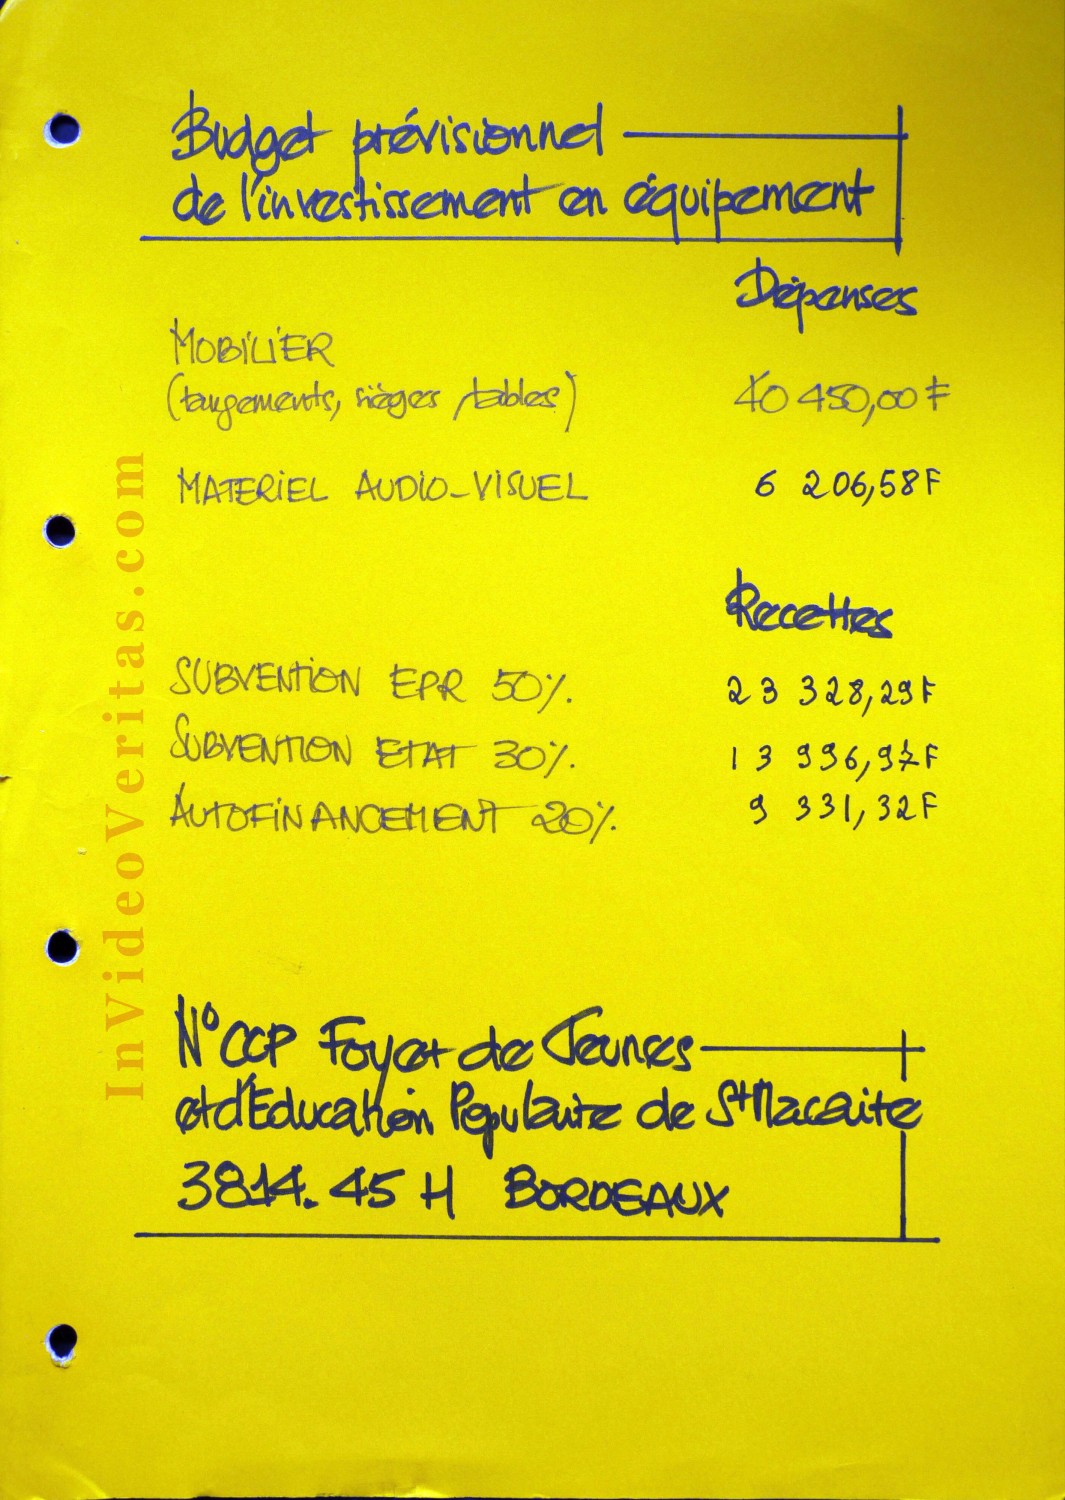 Budget prévisionnel
de l'investissement en équipement
Dépenses
MOBILIER
(rangements, sièges, tables) 40 450,00 F
MATERIEL AUDIO-VISUEL 6 206,58F
Recettes
SUBVENTION EPR 50%. 23 328,29F
SUBVENTION ETAT 30%. 13 996,97F
AUTOFINANCEMENT 20%. 9 331,32F
N° CCP Foyer de Jeunes
et d'Education Populaire de St Macaire
3814.45 H BORDEAUX
InVideoVeritas.com